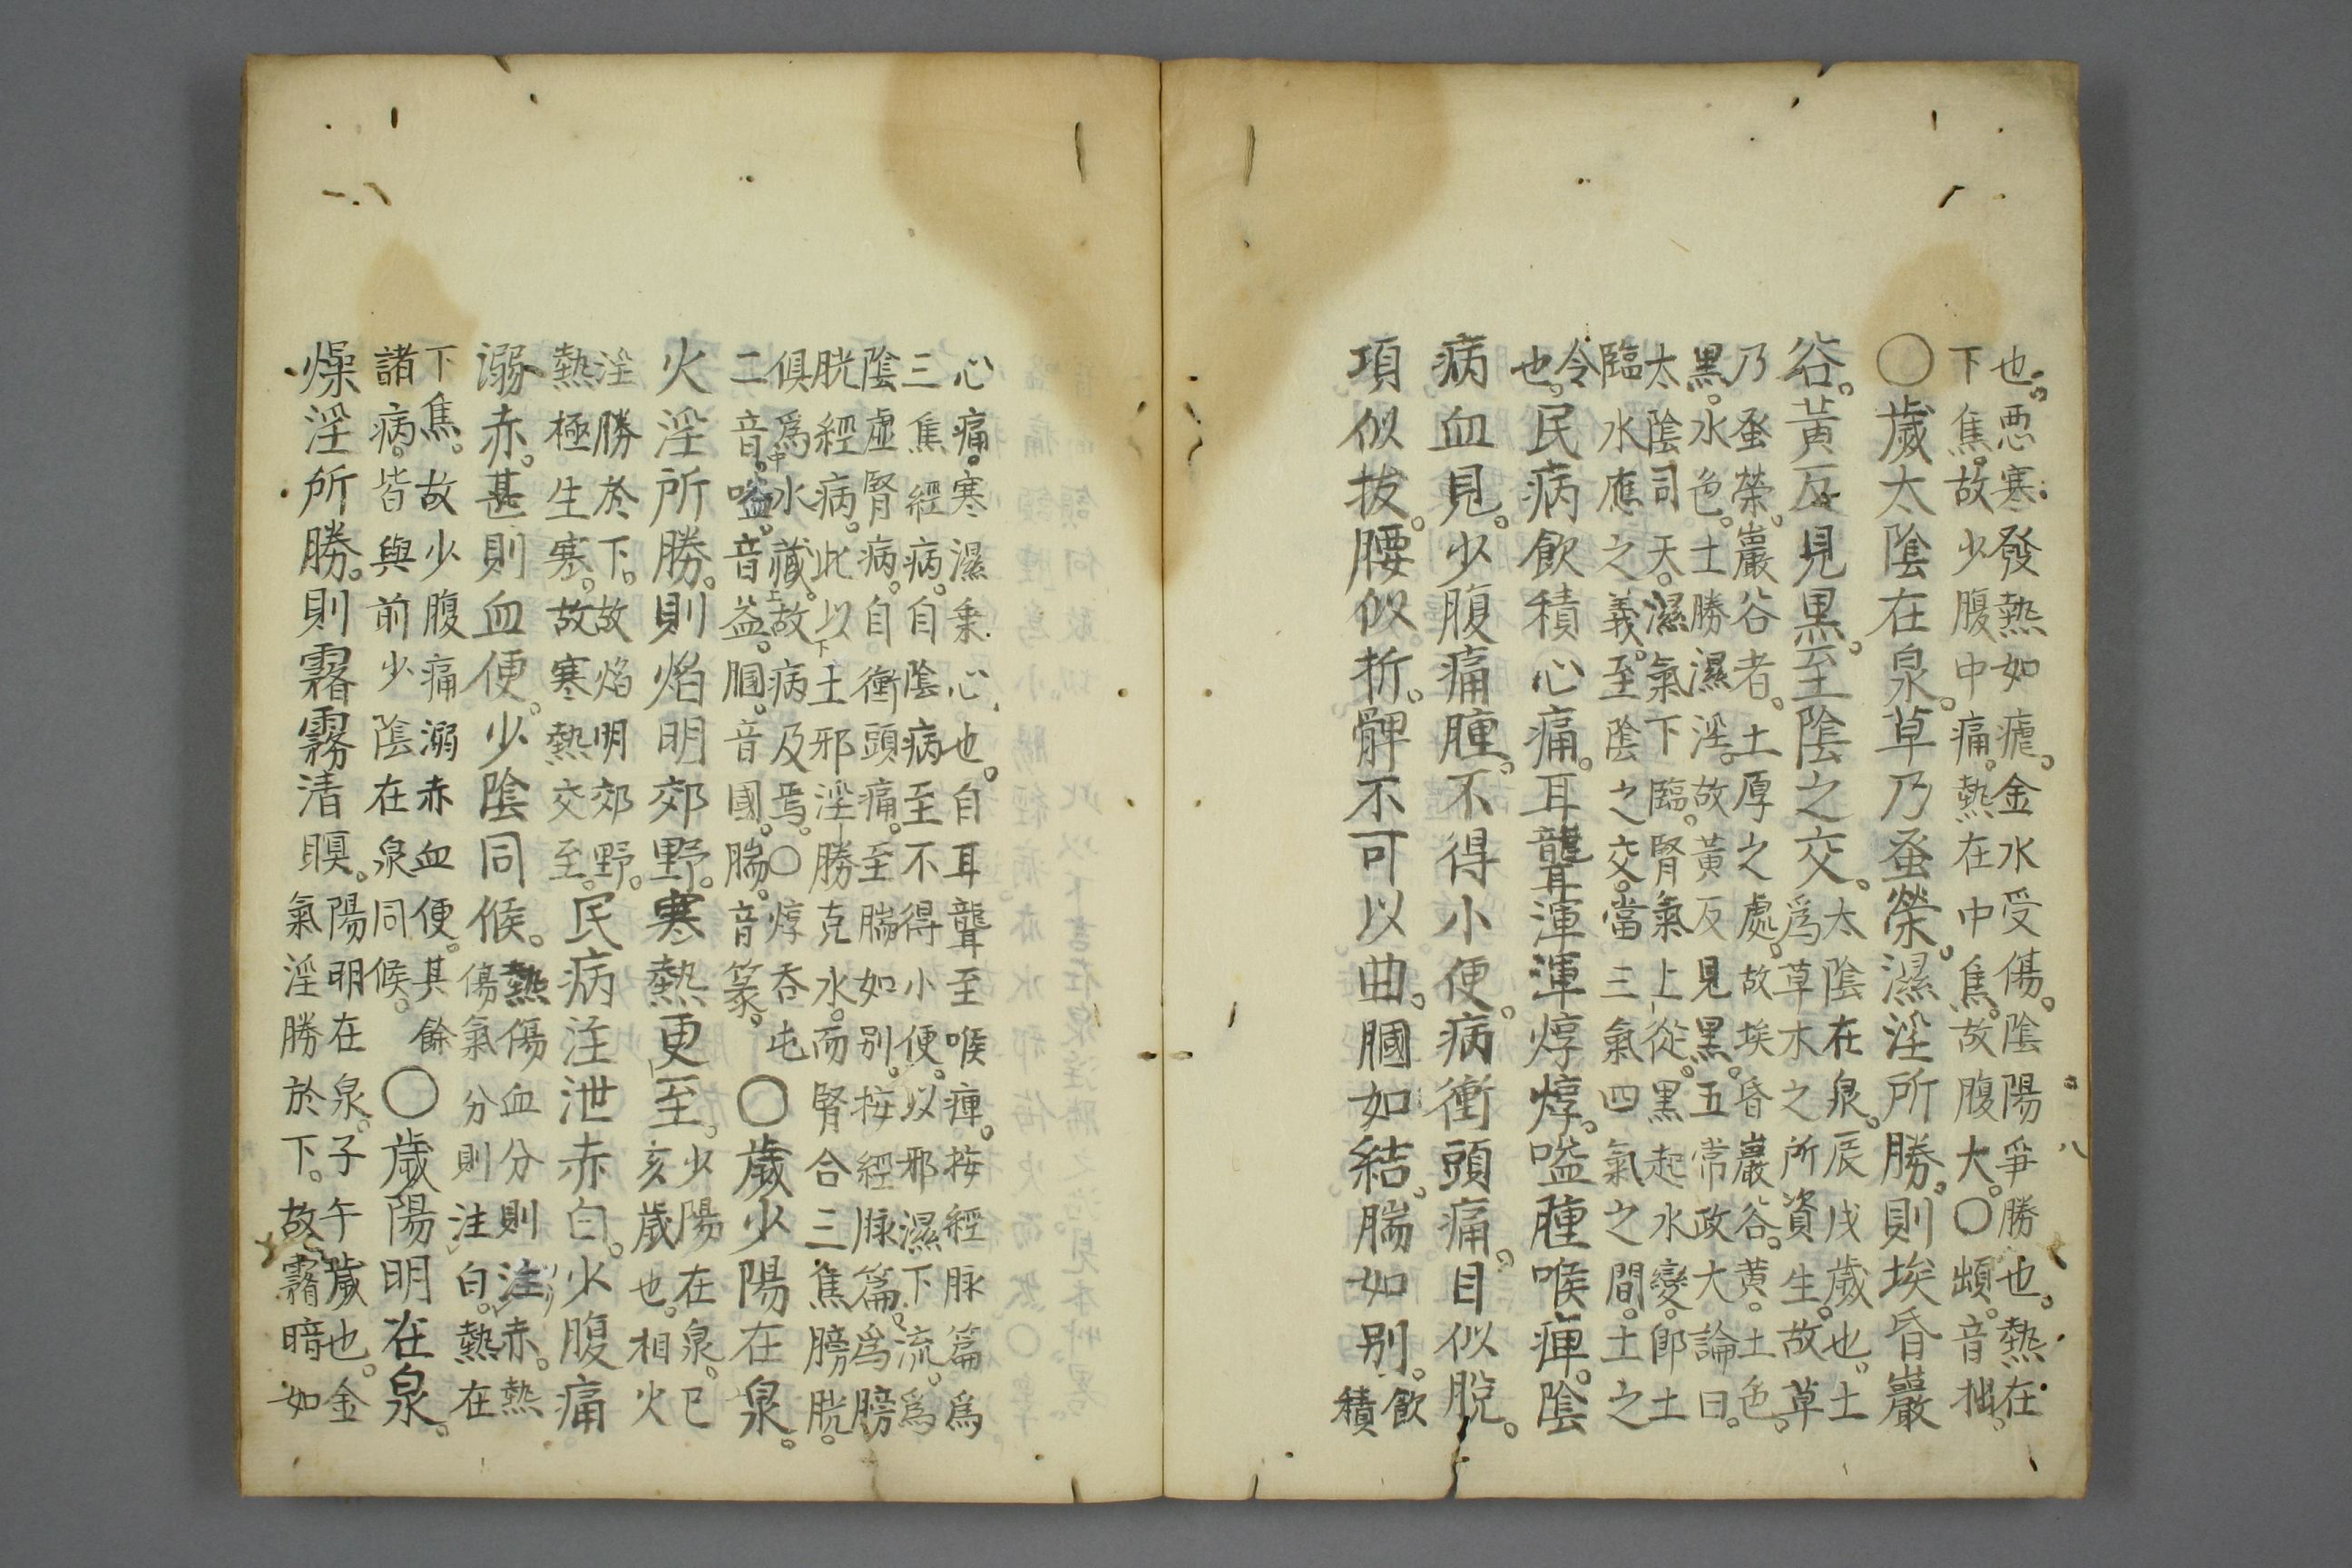 也。惡寒發熱如瘧。金水受傷。陰陽爭勝也。熱在
下焦。故少腹中痛。熱在中焦。故腹大。〇䪼。音拙。
〇歲太陰在泉。草乃蚤榮。濕淫所勝。則埃昏巖
谷。黃反見黑。至陰之交。
太陰在泉。辰戌歲也。土
爲草木之所資生。故草
乃蚤榮。巖谷者。土厚之處。故埃昏巖谷。黃。土色。
黑。水色。土勝濕淫。故黃反見黑。五常政大論曰。
太陰司天。濕氣下臨。腎氣上從。黑起水變。卽土
臨水應之義。至陰之交。當三氣四氣之間。土之
令
也。
民病飲積心痛。耳聾渾渾焞焞。嗌腫喉痺。陰
病血見。少腹痛腫。不得小便。病衝頭痛。目似脫。
項似拔。腰似折。髀不可以曲。膕如結。腨如別。
飲
積
心痛。寒濕乘心也。自耳聾至喉痺。按經脉篇爲
三焦經病。自陰病至不得小便。以邪濕下流。爲
陰虛腎病。自衝頭痛。至腨如別。按經脉篇。爲膀
胱經病。此以土邪淫勝克水。而腎合三焦膀胱。
俱爲水藏。故病及焉。〇焞吞屯
二音。嗌。音益。膕。音國。腨。音篆。
〇歲少陽在泉。
火淫所勝。則焰明郊野。寒熱更至。
少陽在泉。巳
亥歲也。相火
淫勝於下。故焰明郊野。
熱極生寒。故寒熱交至。
民病注泄赤白。少腹痛
溺赤。甚則血便。少陰同候。
熱傷血分則注赤。熱
傷氣分則注白。熱在
下焦。故少腹痛溺赤血便。其餘
諸病。皆與前少陰在泉同候。
〇歲陽明在泉。
燥淫所勝。則霿霧清暝。
陽明在泉。子午歲也。金
氣淫勝於下。故霿暗如